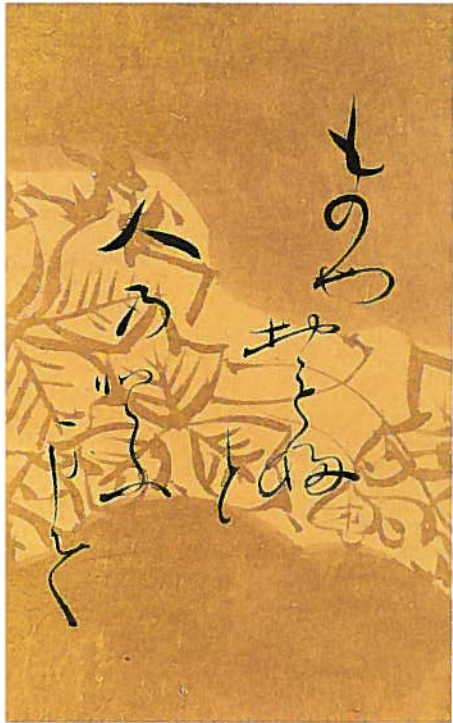 ものや
おもふ
と
人乃とふ
まて